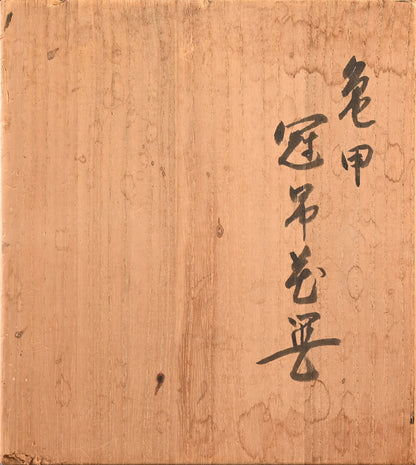 亀甲
冠吊花器